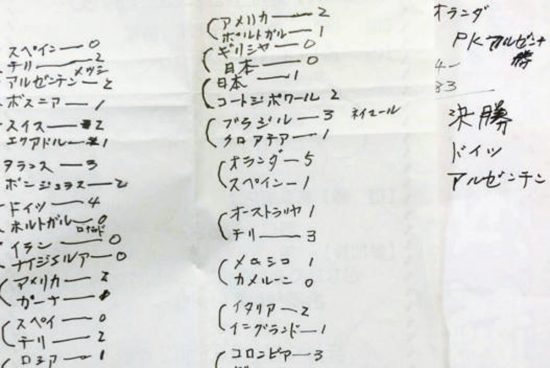 スペイン — 0
チリ — 2
メッシ
アルゼンチン — 2
ボスニア — 1
スイス — 2
エクアドル — 1
フランス — 3
ホンジュラス — 2
ドイツ — 4
ポルトガル — 0
ロナルド
イラン — 0
ナイジェリア — 0
アメリカ — 2
ガーナ
スペイ — 0
チリ — 2
ロシア — 1
アメリカ — 2
ポルトガル — 1
ギリシャ — 0
日本 — 0
日本 — 1
コートジボワール 2
ブラジル — 3 ネイマール
クロアチア — 1
オランダ — 5
スペイン — 1
オーストラリヤ 1
チリ — 3
メキシコ 1
カメルーン 0
イタリア — 2
イングランド — 1
コロンビア — 3
オランダ
PK アルゼンチ
勝
決勝
ドイツ
アルゼンチン